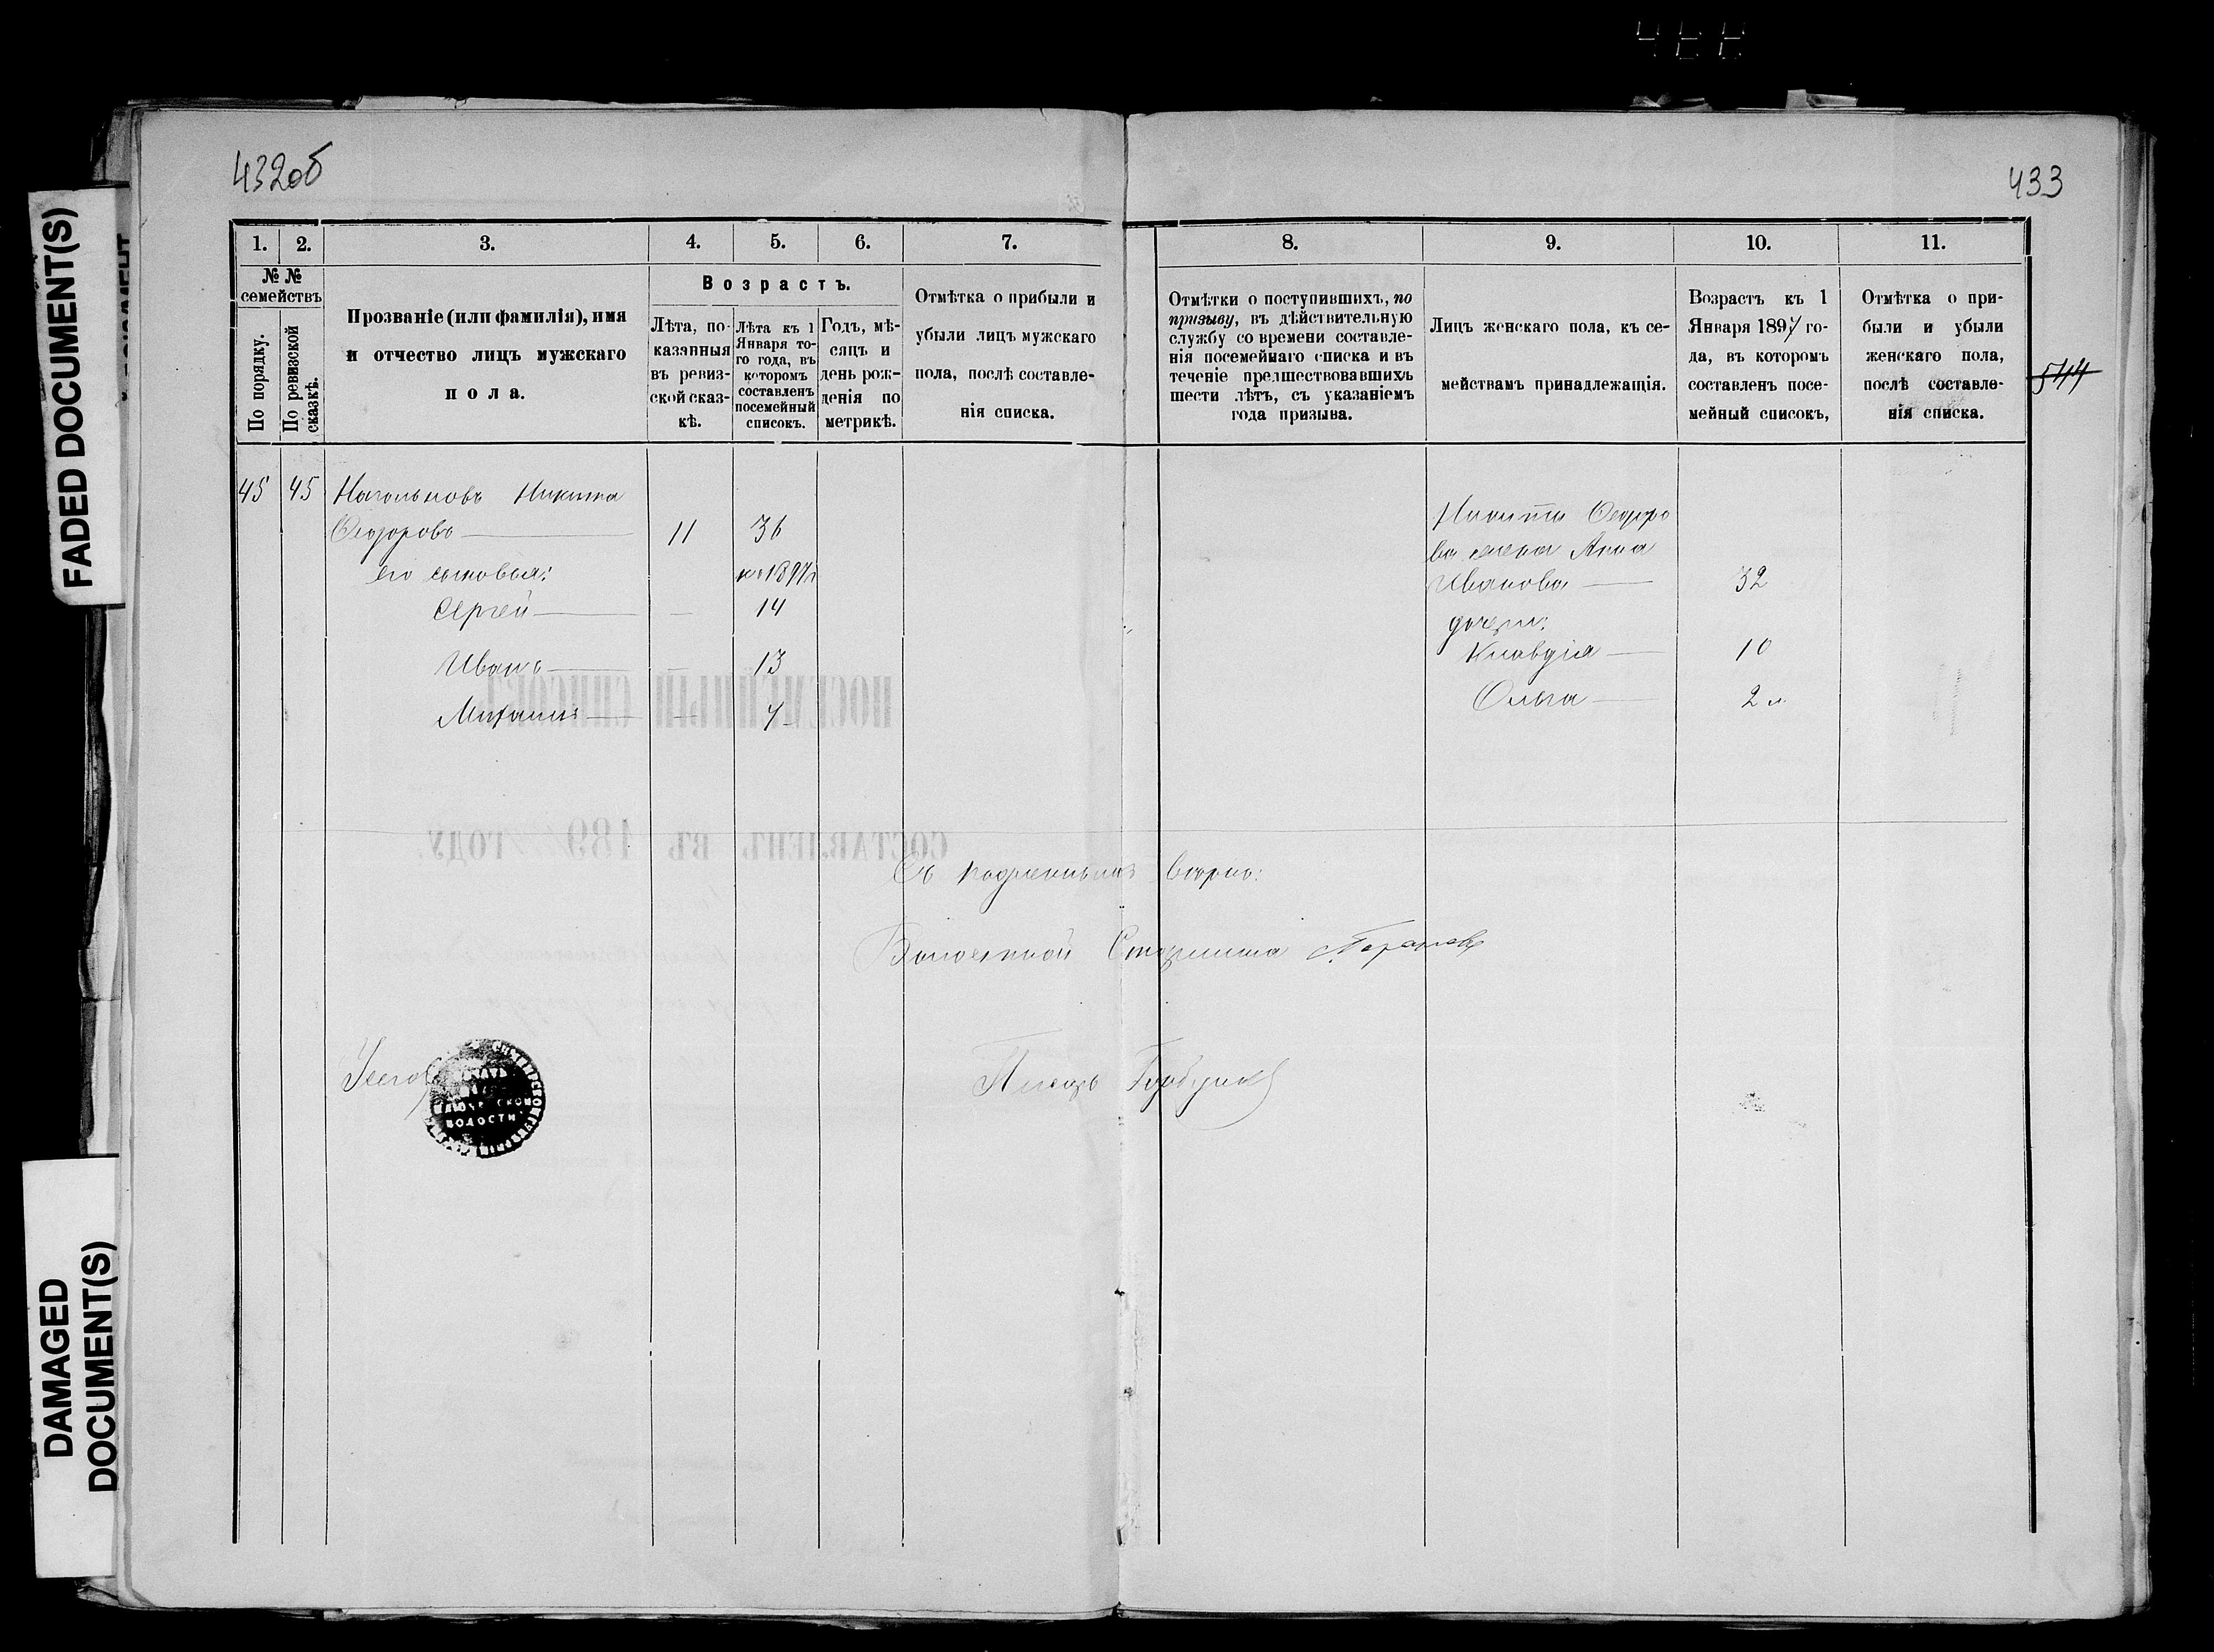 432об
433
544
FADED DOCUMENT(S)
DAMAGED
DOCUMENT(S)
1.
2.
3.
4.
5.
6.
7.
8.
9.
10.
11.
№ №
семействъ
По порядку.
По ревизской
сказкѣ.
Прозваніе (или фамилія), имя
и отчество лицъ мужскаго
пола.
Возрастъ.
Лѣта, по-
казанныя
въ ревиз-
ской сказ-
кѣ.
Лѣта къ 1
Января то-
го года, въ
которомъ
составленъ
посемейный
списокъ.
Годъ, мѣ-
сяцъ и
день рож-
денія по
метрикѣ.
Отмѣтка о прибыли и
убыли лицъ мужскаго
пола, послѣ составле-
нія списка.
Отмѣтки о поступившихъ, по
призыву, въ дѣйствительную
службу со времени составле-
нія посемейнаго списка и въ
теченіе предшествовавшихъ
шести лѣтъ, съ указаніемъ
года призыва.
Лицъ женскаго пола, къ се-
мействамъ принадлежащія.
Возрастъ къ 1
Января 1897 го-
да, въ которомъ
составленъ посе-
мейный списокъ,
Отмѣтка о при-
были и убыли
женскаго пола,
послѣ составле-
нія списка.
45 45 Нагольновъ Никита
Ѳедоровъ — 11 36
его сыновья: къ 1897 г
Сергей — — 14
Иванъ — — 13
Михаилъ — — 7
Никиты Ѳедоро
ва жена Анна
Иванова — 32
дочери:
Клавдія — 10
Ольга — 2 л.
Съ подлиннымъ вѣрно:
Волостной Старшина
Писарь
ВОЛОСТИ